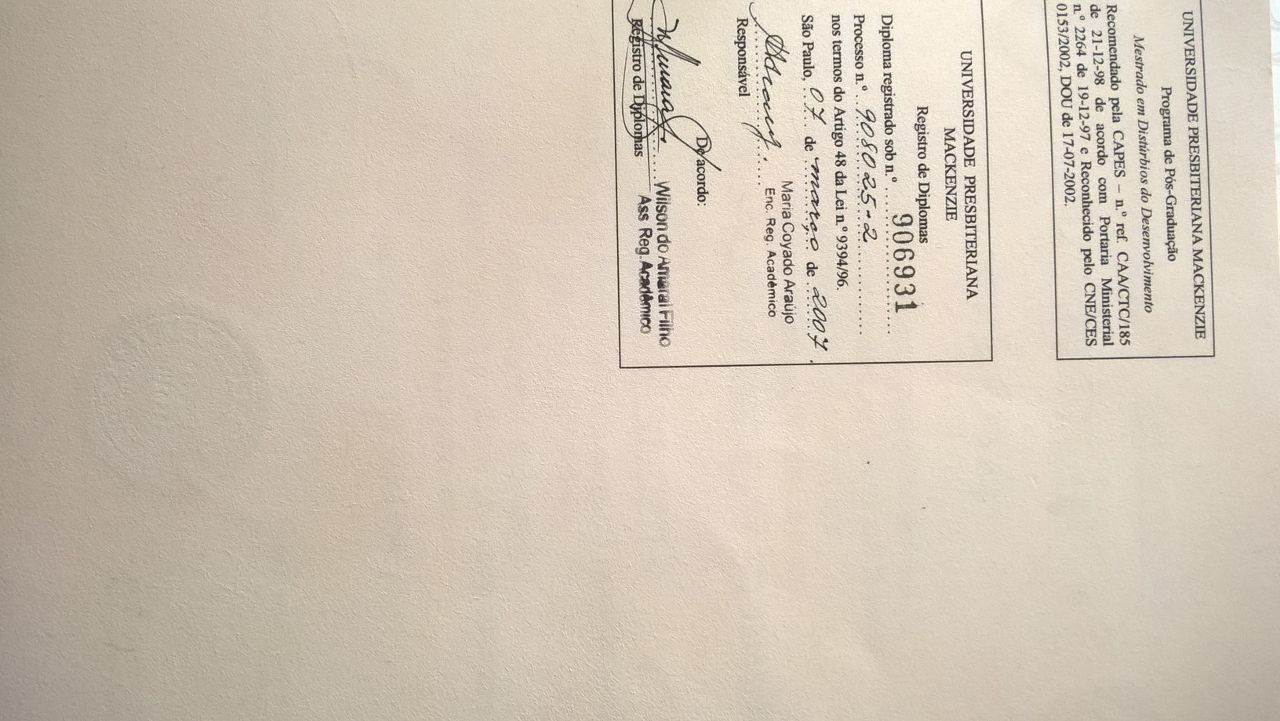 UNIVERSIDADE PRESBITERIANA MACKENZIE
Programa de Pós-Graduação
Mestrado em Distúrbios do Desenvolvimento
Recomendado pela CAPES – n.º ref. CAA/CTC/185
de 21-12-98 de acordo com Portaria Ministerial
n.º 2264 de 19-12-97 e Reconhecido pelo CNE/CES
0153/2002, DOU de 17-07-2002.
UNIVERSIDADE PRESBITERIANA
MACKENZIE
Registro de Diplomas
Diploma registrado sob n.º 906931
Processo n.º 908025-2
nos termos do Artigo 48 da Lei n.º 9394/96.
São Paulo, 07 de março de 2007.
Maria Coyado Araújo
Enc. Reg. Acadêmico
Responsável
De acordo:
Wilson do Amaral Filho
Ass Reg. Acadêmico
Registro de Diplomas